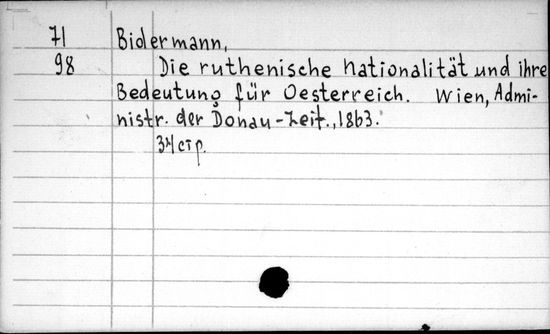 71 Bidermann,
98 Die ruthenische Nationalität und ihre
Bedeutung für Oesterreich. Wien, Admi-
nistr. der Donau-Zeit., 1863.
34 стр.